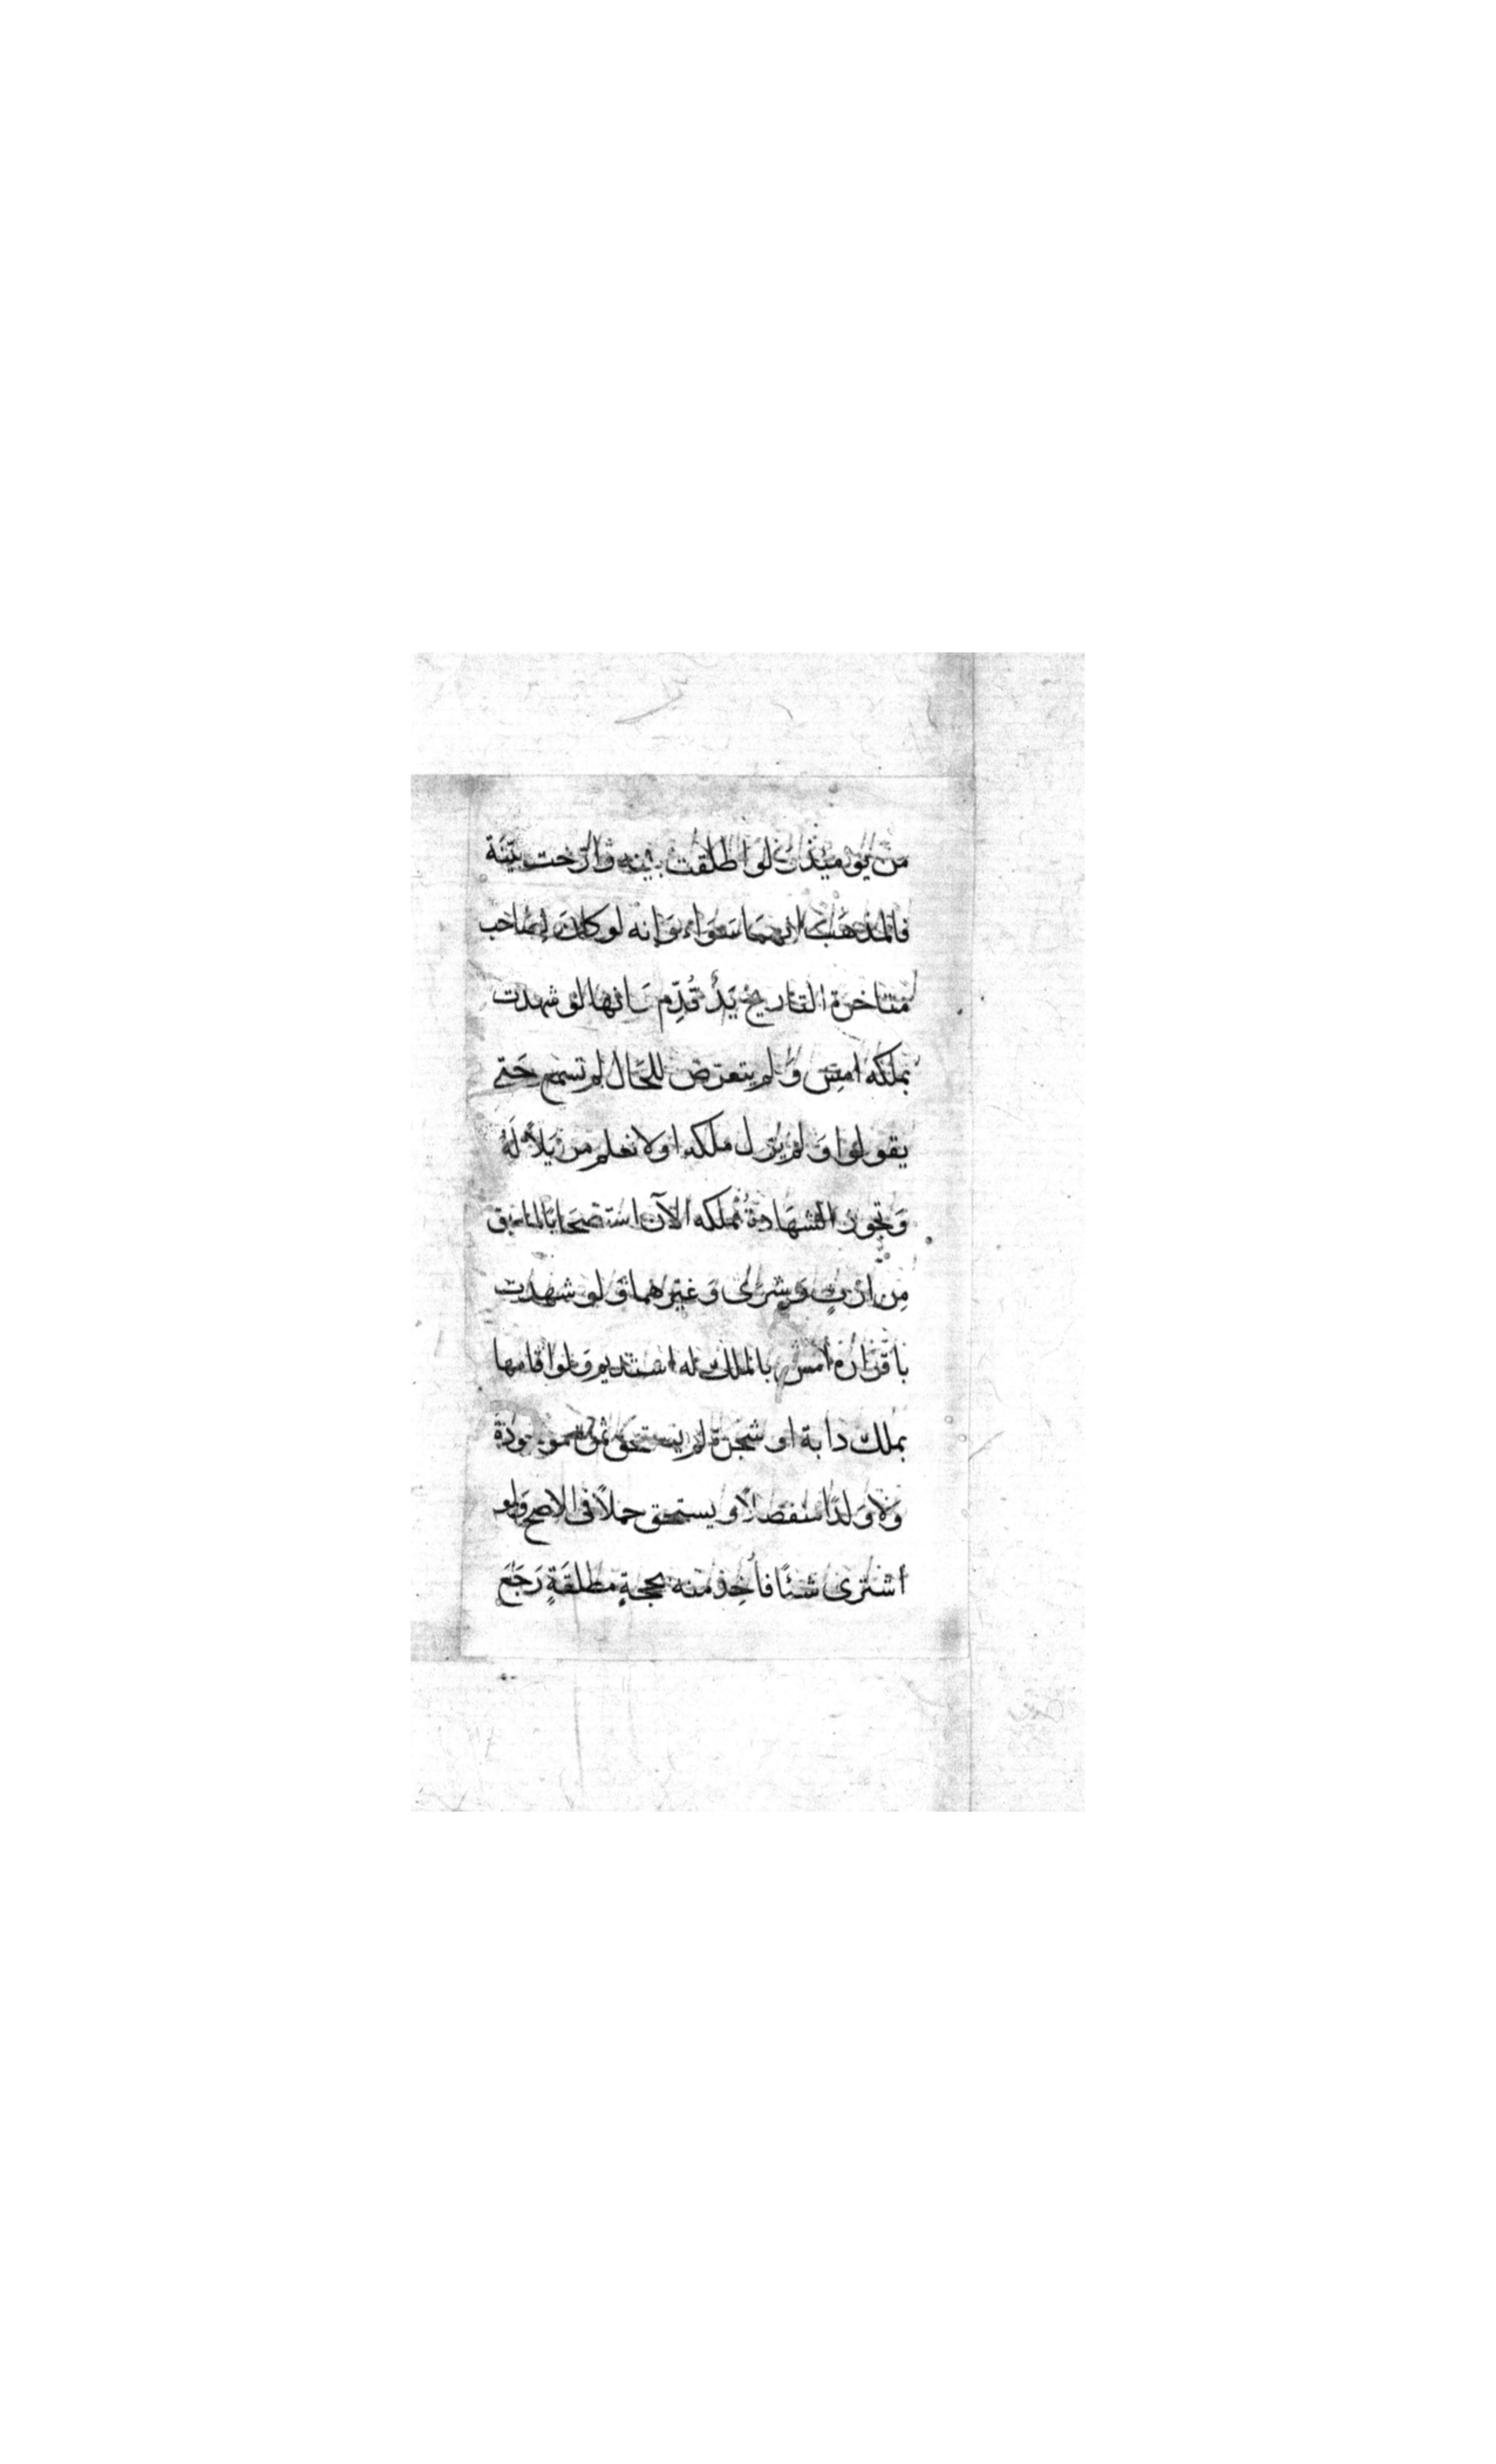 من يوميذ و لو اطلقت بينه وارّخت بيّنَة
فالمذهَب انهمَا سَوَاء وَانه لو كان لصَاحب
متاخرة التاريخ يَدٌ قُدِّم وَانها لو شهدت
بملكه امسِ وَلم يتعرّض للحَال لم تسمع حَتى
يقولوا وَلم يزل ملكه او لا نعلم مزيلاً لَهُ
وَتجوز الشهَادة بملكه الآن استصحَابًا لما سبق
مِن ارثٍ وَشِرَى وَغيرهما وَلو شهدت
باقراره أمس بالملك له استديم وَلو اقامها
بملك دابة او شجرة لم يستحق ثمرة موجودة
وَلا وَلدًا منفصلاً ويستحق حملاً فى الاصح وَلو
أشترى شئًا فأُخِذ منه بحجةٍ مطلقَةٍ رَجَعَ